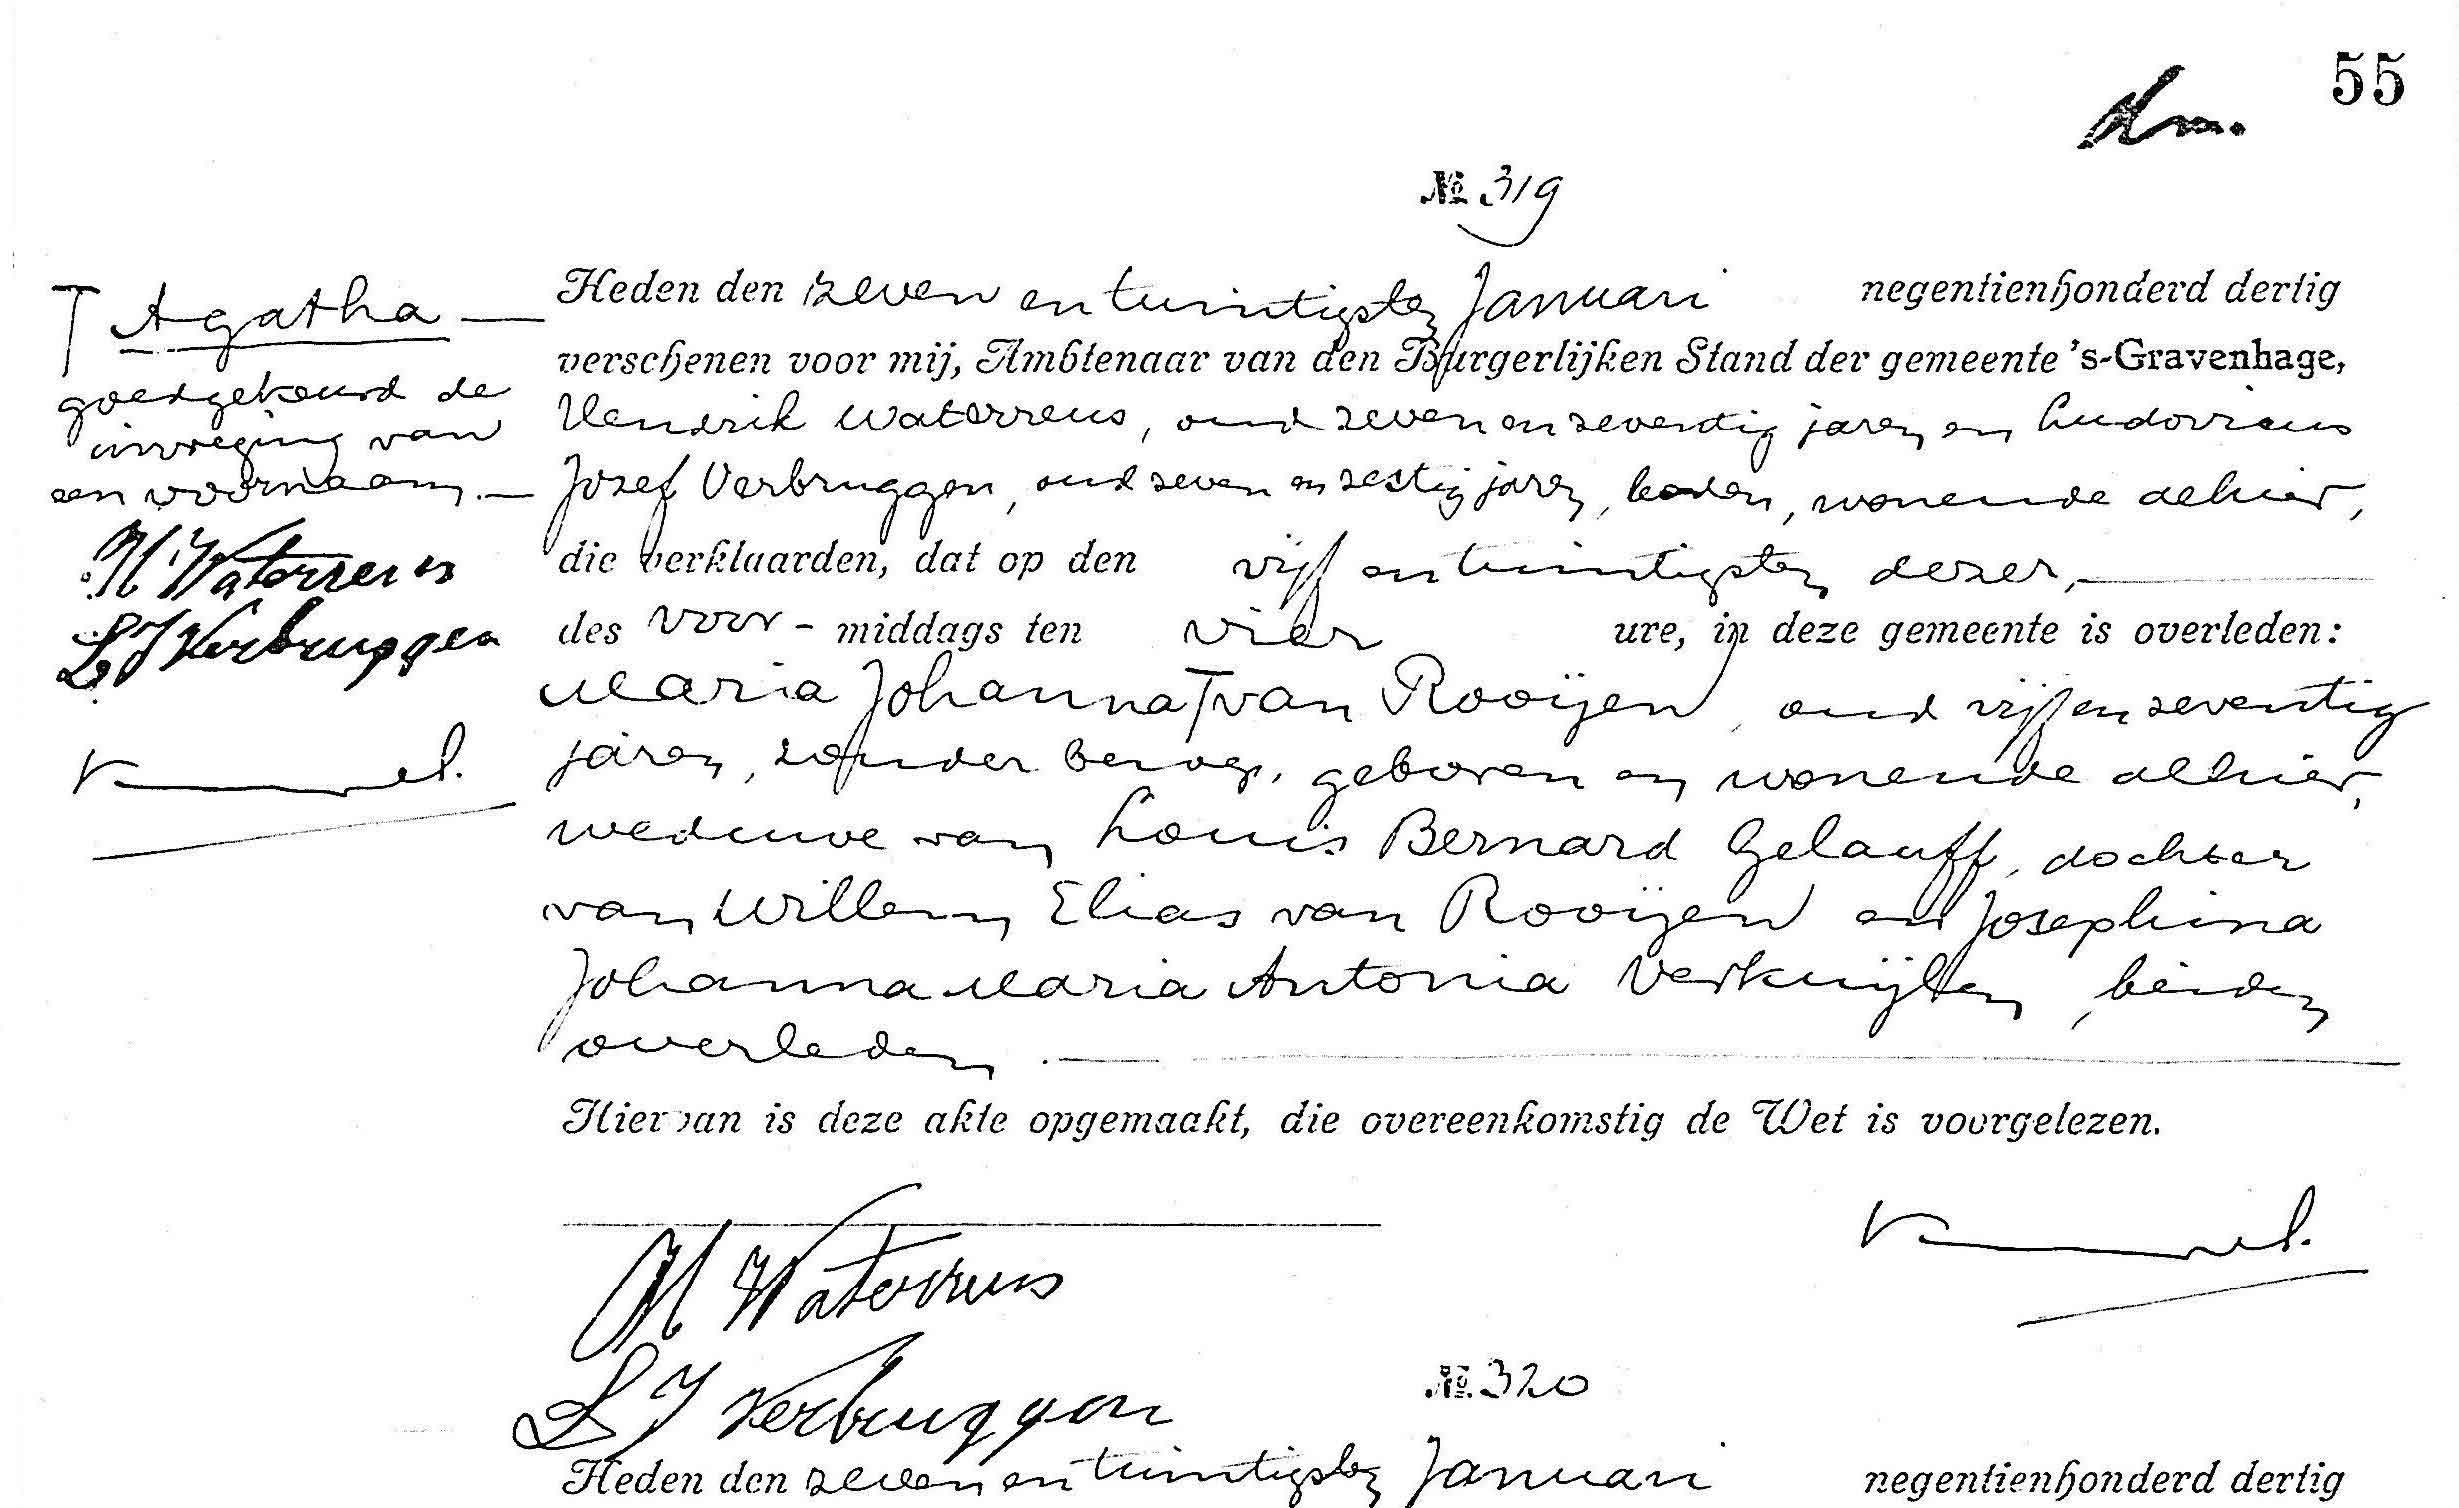 55
№ 319
Heden den zeven en twintigsten Januari negentienhonderd dertig
verschenen voor mij, Ambtenaar van den Burgerlijken Stand der gemeente 's-Gravenhage,
Hendrik Waterreus, oud zeven en zeventig jaren en Ludovicus
Jozef Verbruggen, oud zeven en zestig jaren, boden, wonende alhier,
die verklaarden, dat op den vijf en twintigsten dezer,
des voor - middags ten vier ure, in deze gemeente is overleden:
Maria Johanna ⊤ van Rooijen, oud vijf en zeventig
jaren, zonder beroep, geboren en wonende alhier,
weduwe van Louis Bernard Gelauff, dochter
van Willem Elias van Rooijen en Josephina
Johanna Maria Antonia Verkuijlen, beiden
overleden.
Hiervan is deze akte opgemaakt, die overeenkomstig de Wet is voorgelezen.
H Waterreus
L J Verbruggen
⊤ Agatha
goedgekeurd de
invoeging van
een voornaam.
H Waterreus
L J Verbruggen
№ 320
Heden den zeven en twintigsten Januari negentienhonderd dertig